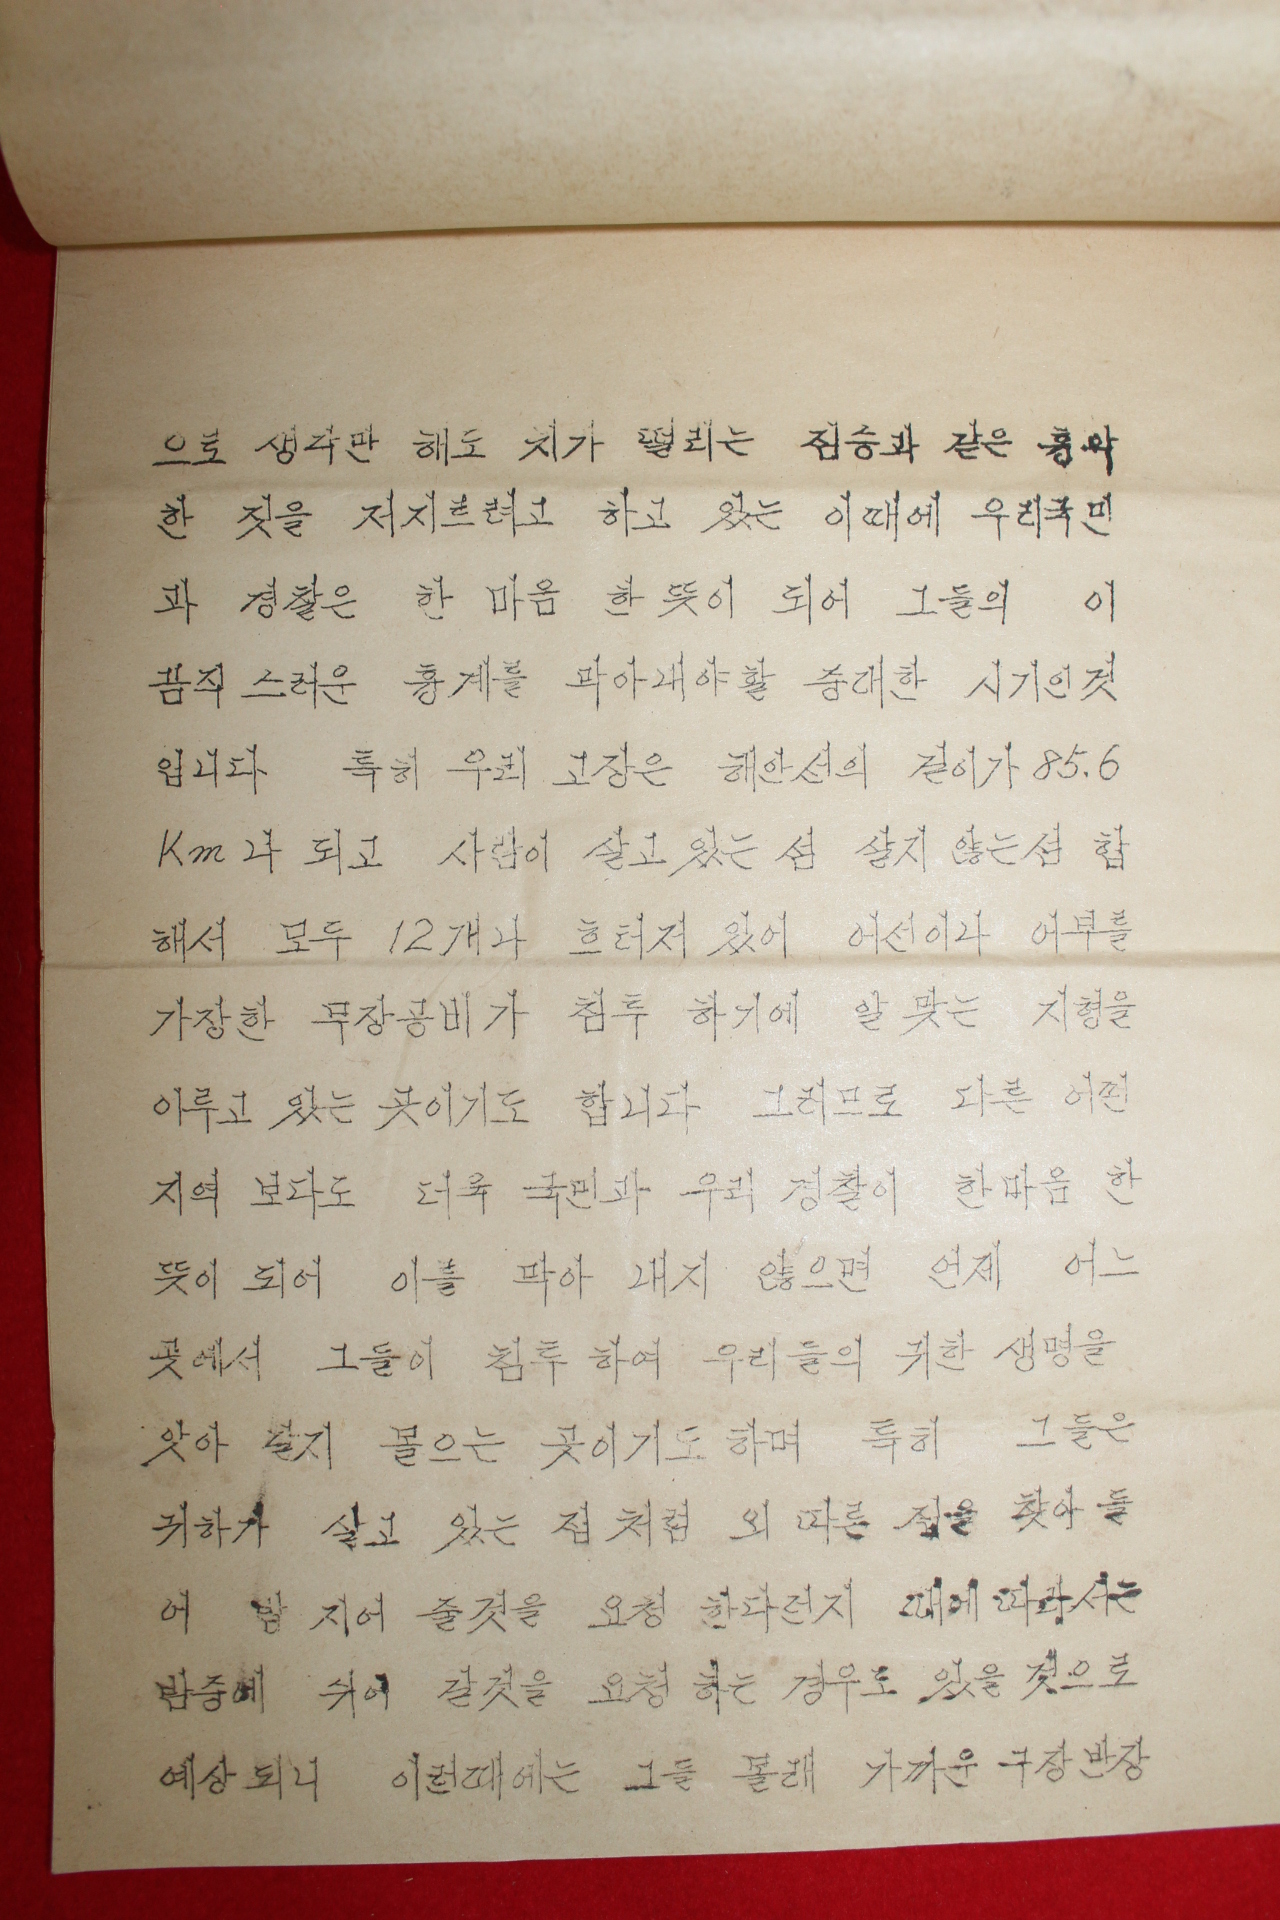 으로 생각만 해도 치가 떨리는 짐승과 같은 흉악
한 짓을 저지르려고 하고 있는 이때에 우리국민
과 경찰은 한 마음 한 뜻이 되어 그들의 이
끔직 스러운 흉계를 막아내야 할 중대한 시기인것
입니다 특히 우리 고장은 해안선의 길이가 85.6
Km나 되고 사람이 살고 있는 섬 살지 않는섬 합
해서 모두 12개나 흐터저 있어 어선이나 어부를
가장한 무장공비가 침투 하기에 알 맞는 지형을
이루고 있는 곳이기도 합니다 그러므로 다른 어떤
지역 보다도 더욱 국민과 우리 경찰이 한마음 한
뜻이 되어 이를 막아 내지 않으면 언제 어느
곳에서 그들이 침투 하여 우리들의 귀한 생명을
앗아 갈지 몰으는 곳이기도 하며 특히 그들은
귀하가 살고 있는 집 처럼 외 따른 집을 찾아 들
어 밥 지어 줄것을 요청 한다던지 때에 따라서는
밤중에 쉬어 갈것을 요청 하는 경우도 있을 것으로
예상 되니 이런때에는 그들 몰래 가까운 구장 반장